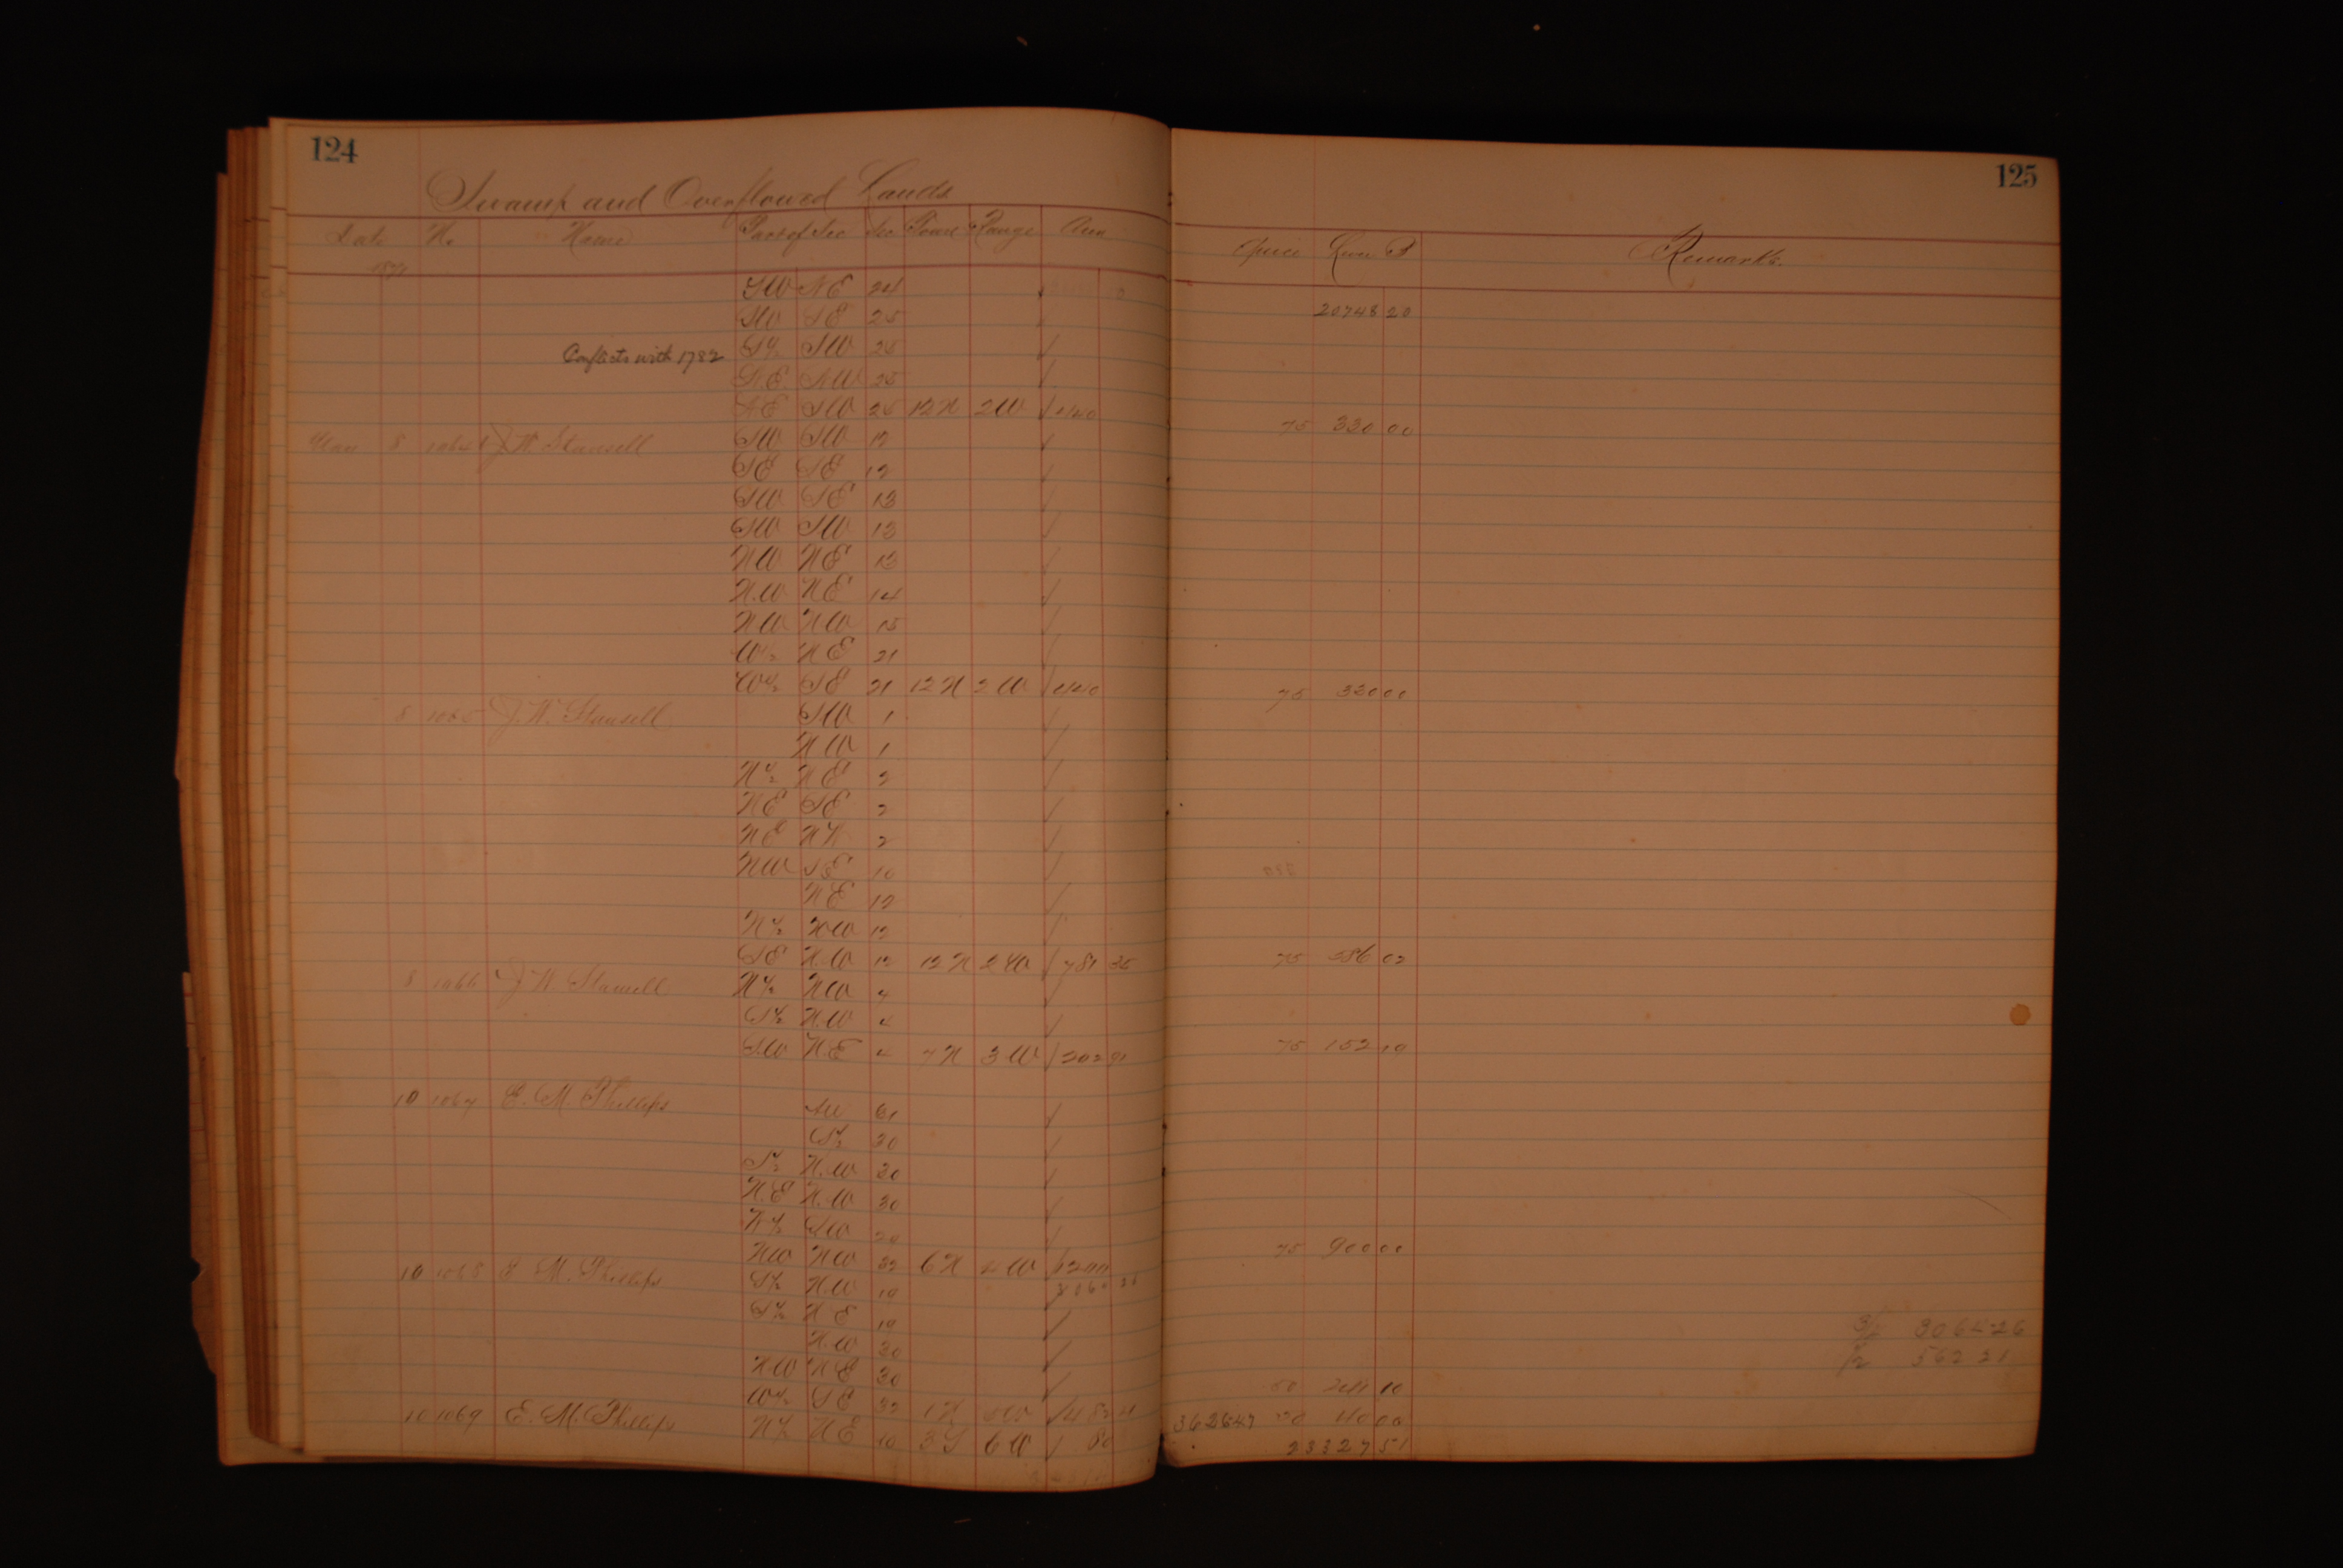 124
125
Swamp and Overflowed Lands
Date No Name Part of Sec Sec Town Range Area Price Remarks.
1871
SW NE 24
SW SE 25 20748 20
Conflicts with 1782 S½ SW 25
N.E. NW 25
NE SW 25 12N 2W 440 75 330 00
8 1064 J.W. Stansell SW SW 12
SE SE 12
SW SE 13
SW SW 13
NW NE 13
N.W NE 14
NW NW 15
W½ NE 21
W½ SE 21 12N 2W 440 75 330 00
8 1065 J.W. Stansell SW 1
NW 1
N½ NE 2
NE SE 2
NE 2
NW SE 10
NE 12
N½ NW 12
SE N.W 12 12N 2W 781 35 75 586 02
8 1066 J.W. Stansell N½ NW 4
S½ N.W 4
S.W N.E 4 7N 3W 202 91 75 152 19
10 1067 E. M. Phillips All
S½ 20
S½ N.W 20
N.E N.W 30
N½ SW
NW NW 32 6N 4W 1200 75 900 00
10 1068 E. M. Phillips S½ N.W 19
S½ N E 19
N.W 30
N.W N E 30
W½ SE 32 50 10
10 1069 E. M. Phillips N½ N E 10 3S 6W 80 362647 50 40 00
23327 51
3064 26
562 21